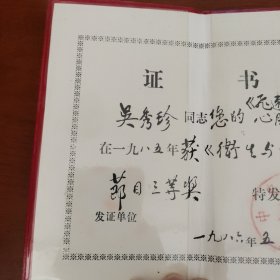 证 书
《花
吴秀珍同志您的心
在一九八五年获《衛生与
节目三等奖
特发
发证单位
一九八六年五